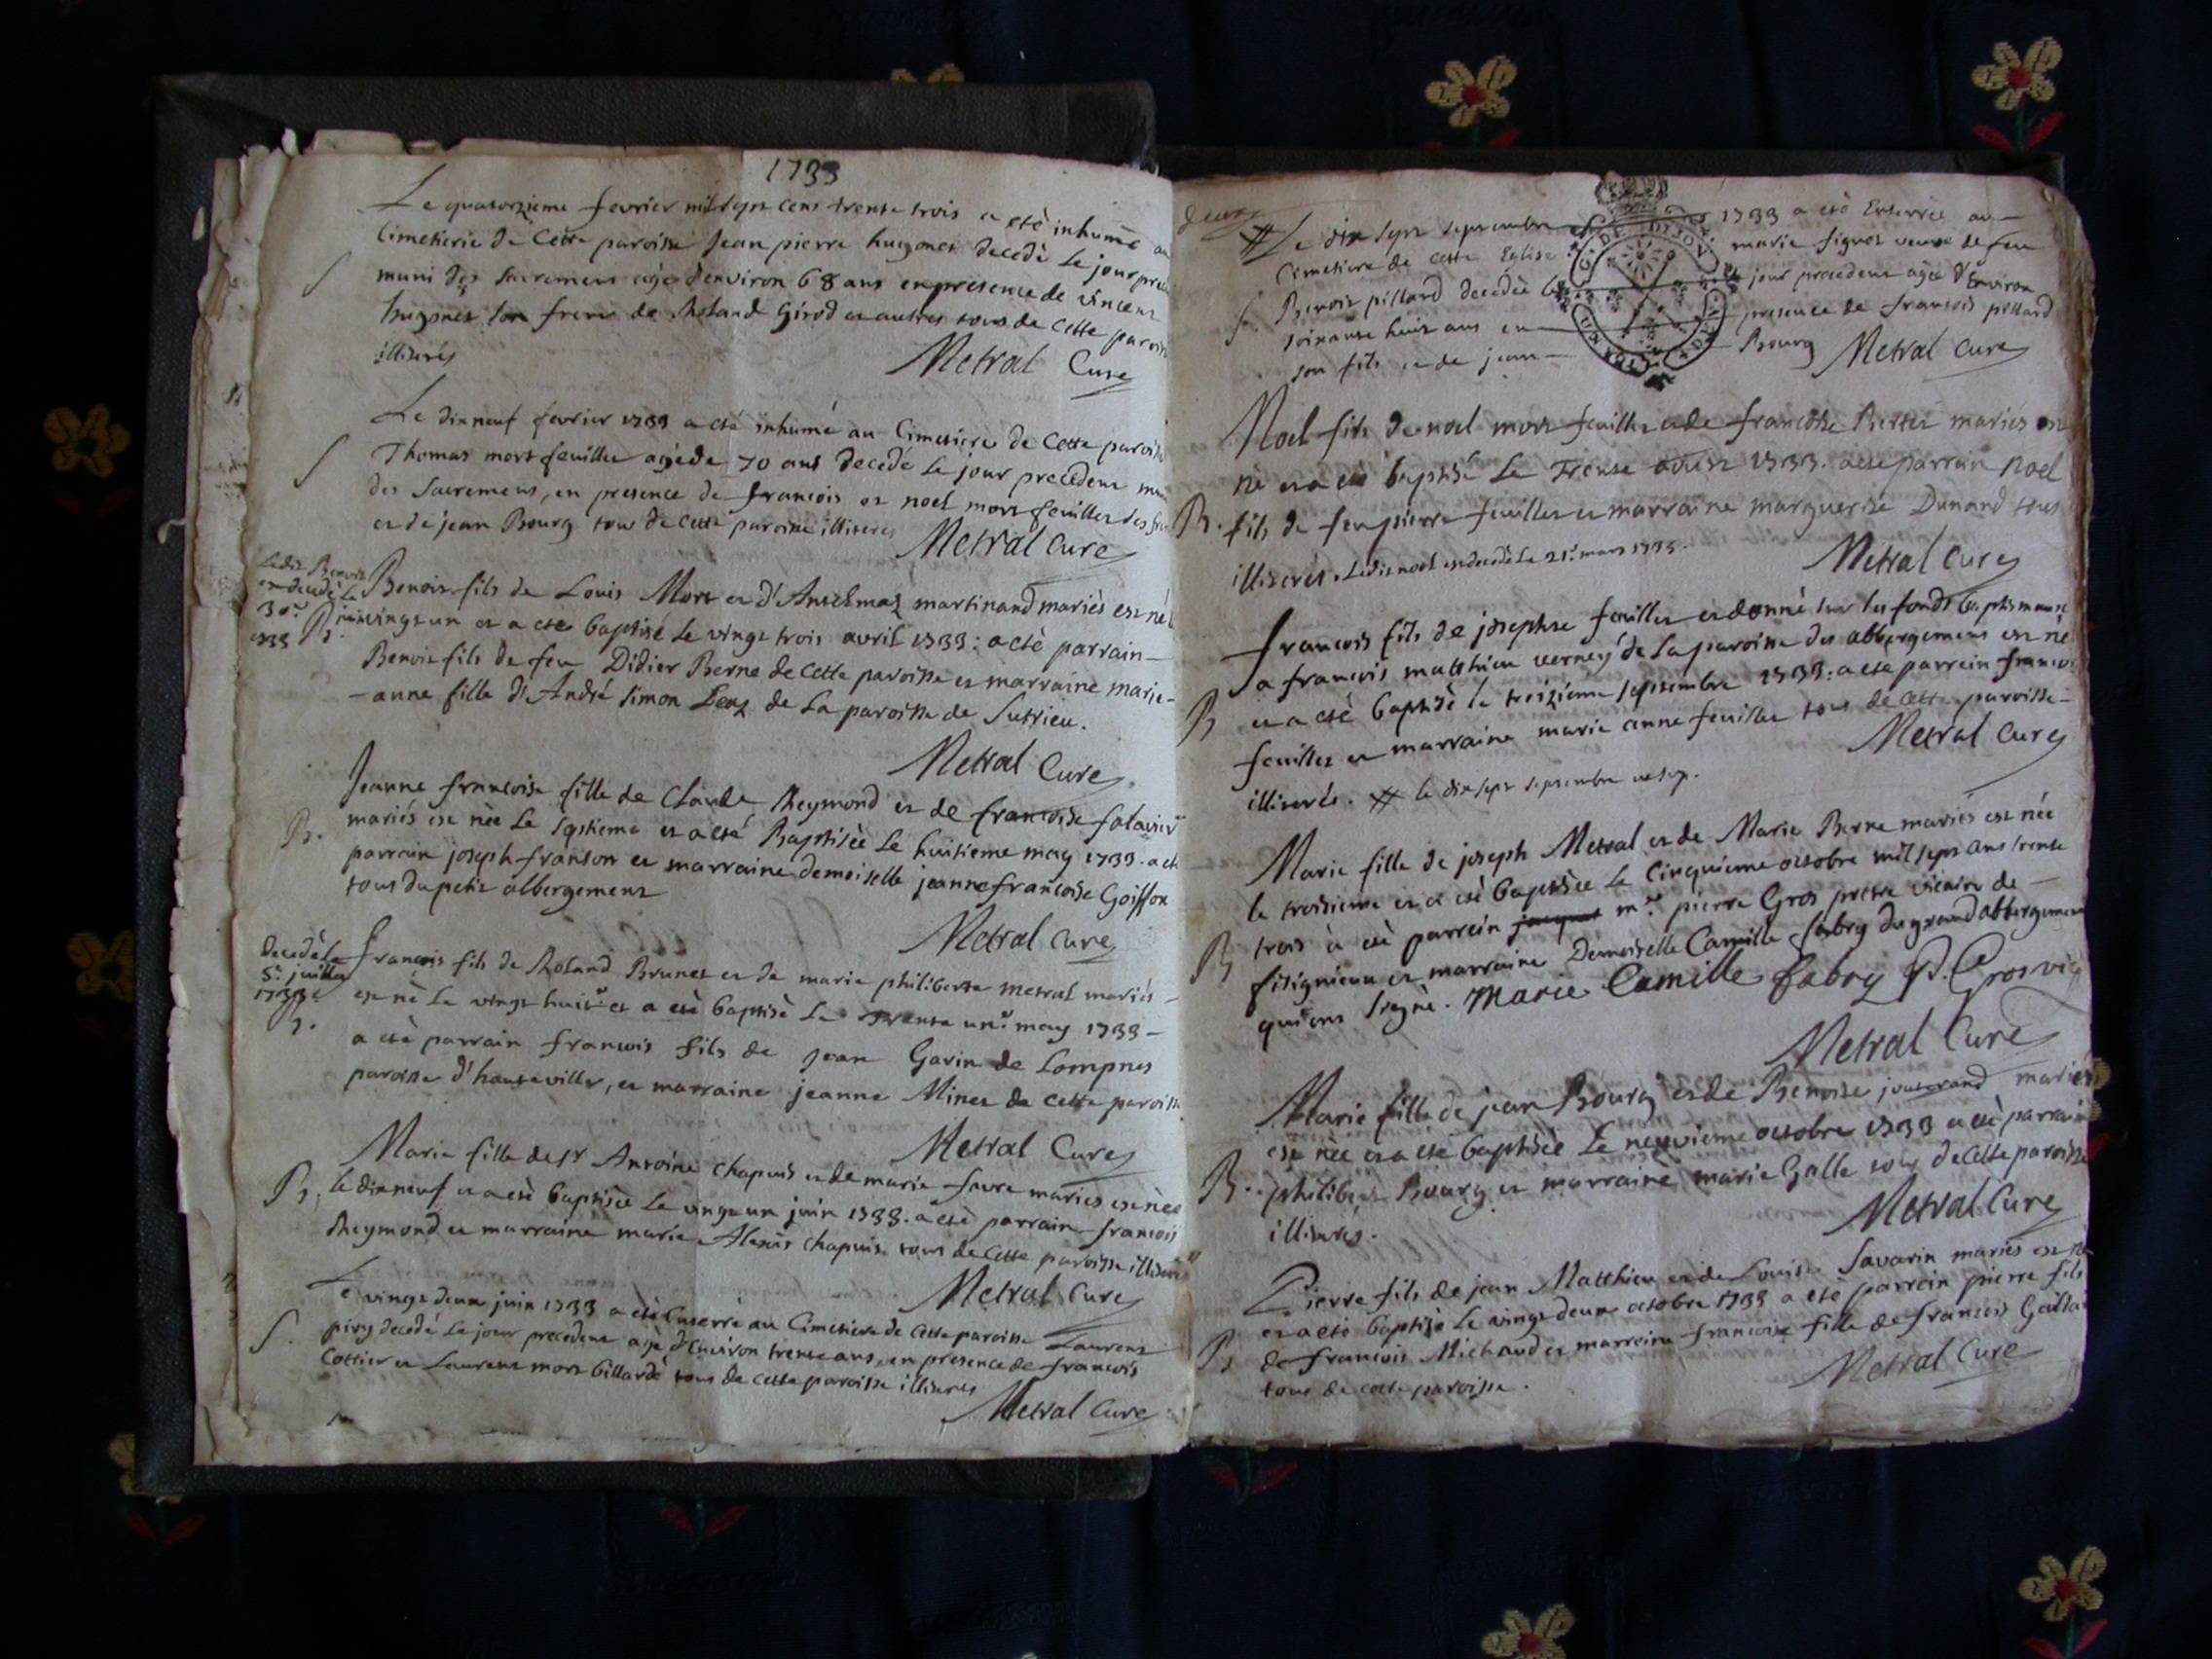 1733
Le quatorzieme fevrier mil sept cens trente trois a eté inhumé au
Cimetiere de Cette paroisse Jean pierre hugonet decedé Le jour prece
muni des Sacremens agé d'environ 68 ans en presence de vincent
hugonet son frere de Roland Girod et autres tous de cette paroisse
S
illiterés
Metral Curé
Le dixneuf fevrier 1733 a eté inhumé au Cimetiere de Cette paroisse
Thomas mortfeuillet agé de 70 ans decedé le jour precedent muni
S
des Sacremens, en presence de francois et noel mort feuillet des
et de jean Bourg tous de cette paroisse illiteres
Metral Curé
Ledit Benoit
est decedé Le
30e juin
1733
B.
Benoit fils de Louis Mort et d'Anselmaz martinand mariés est né l
vingt un et a eté baptisé Le vingt trois avril 1733: a eté parrain
Benoit fils de feu Didier Berne de Cette paroisse et marraine marie
anne fille d'André Simon de La paroisse de Sutrieu.
Metral Curé
Jeanne francoise fille de Claude Reymond et de francoise
mariés est née Le septieme et a eté Baptisée Le huitieme may 1733. a eté
B.
parrain joseph franson et marraine demoiselle jeanne francoise Goiffon
tous du petit abbergement
Metral Curé
Decedé le
5e juillet
1733
B.
francois fils de Roland Brunet et de marie philiberte metral mariés
est né Le vingt huite et a eté baptisé Le trente une may 1733
a eté parrain francois fils de jean Garin de Lompnes
paroisse d'hauteville, et marraine jeanne Minet de cette paroisse
Metral Curé
Marie fille de sr Antoine Chapuis et de marie favre mariés est née
B.
le dixneuf et a eté baptisée Le vingt un juin 1733. a eté parrain francois
Reymond et marraine marie Alexis Chapuis tous de Cette paroisse illiterés
Metral Curé
Le vingt deux juin 1733 a eté Enterré au Cimetiere de Cette paroisse Laurent
S.
piry decedé Le jour precedent agé d'Environ trente ans, en presence de francois
Cottier et Laurent mort billard tous de cette paroisse illiteres
Metral Curé
Le dix sept septembre 1733 a eté Enterrée au
Cimetiere de cette Eglise marie signet veuve de feu
S.
Benoit pillard decedée le jour precedent agée d'Environ
soixante huit ans en presence de francois pillard
son fils et de jean Bourg
Metral Curé
Noel fils de noel mort feuillet et de francoise Pertet mariés est
né et a eté baptisé Le Trente aoust 1733. a eté parrain noel
B.
fils de feu pierre feuillet et marraine marguerite Dunand tous
illiterés. Ledit noel est decedé Le 21e mars 1735.
Metral Curé
francois fils de josephte feuillet et donné sur les fonds baptismaux
a francois matthieu verney de La paroisse des abbergemens est né
B
et a eté baptisé le treizieme septembre 1733: a eté parrain francois
feuillet et marraine marie anne feuillet tous de cette paroisse
illiterés. # le dix sept septembre
Metral Curé
Marie fille de joseph Metral et de Marie Berne mariés est née
le troisieme et a eté baptisée Le Cinquieme octobre mil sept cens trente
B
trois a eté parrein jacques mre pierre Gros pretre vicaire de
fitignieu et marraine Demoiselle Camille fabry du grand abbergement
qui ont signé. Marie Camille fabry P. Gros vic
Metral Curé
Marie fille de jean Bourg et de Benoite jouterand mariés
est née et a eté baptisée Le neuvieme octobre 1733 a eté parrain
B.
philibert Bourg et marraine marie Galle tous de Cette paroisse
illiterés.
Metral Curé
Pierre fils de jean Matthieu et de Louise Savarin mariés est né
et a eté baptisé Le vingt deux octobre 1733 a eté parrain pierre fils
B
de francois Michaud et marraine francoise fille de francois
tous de cette paroisse.
Metral Curé